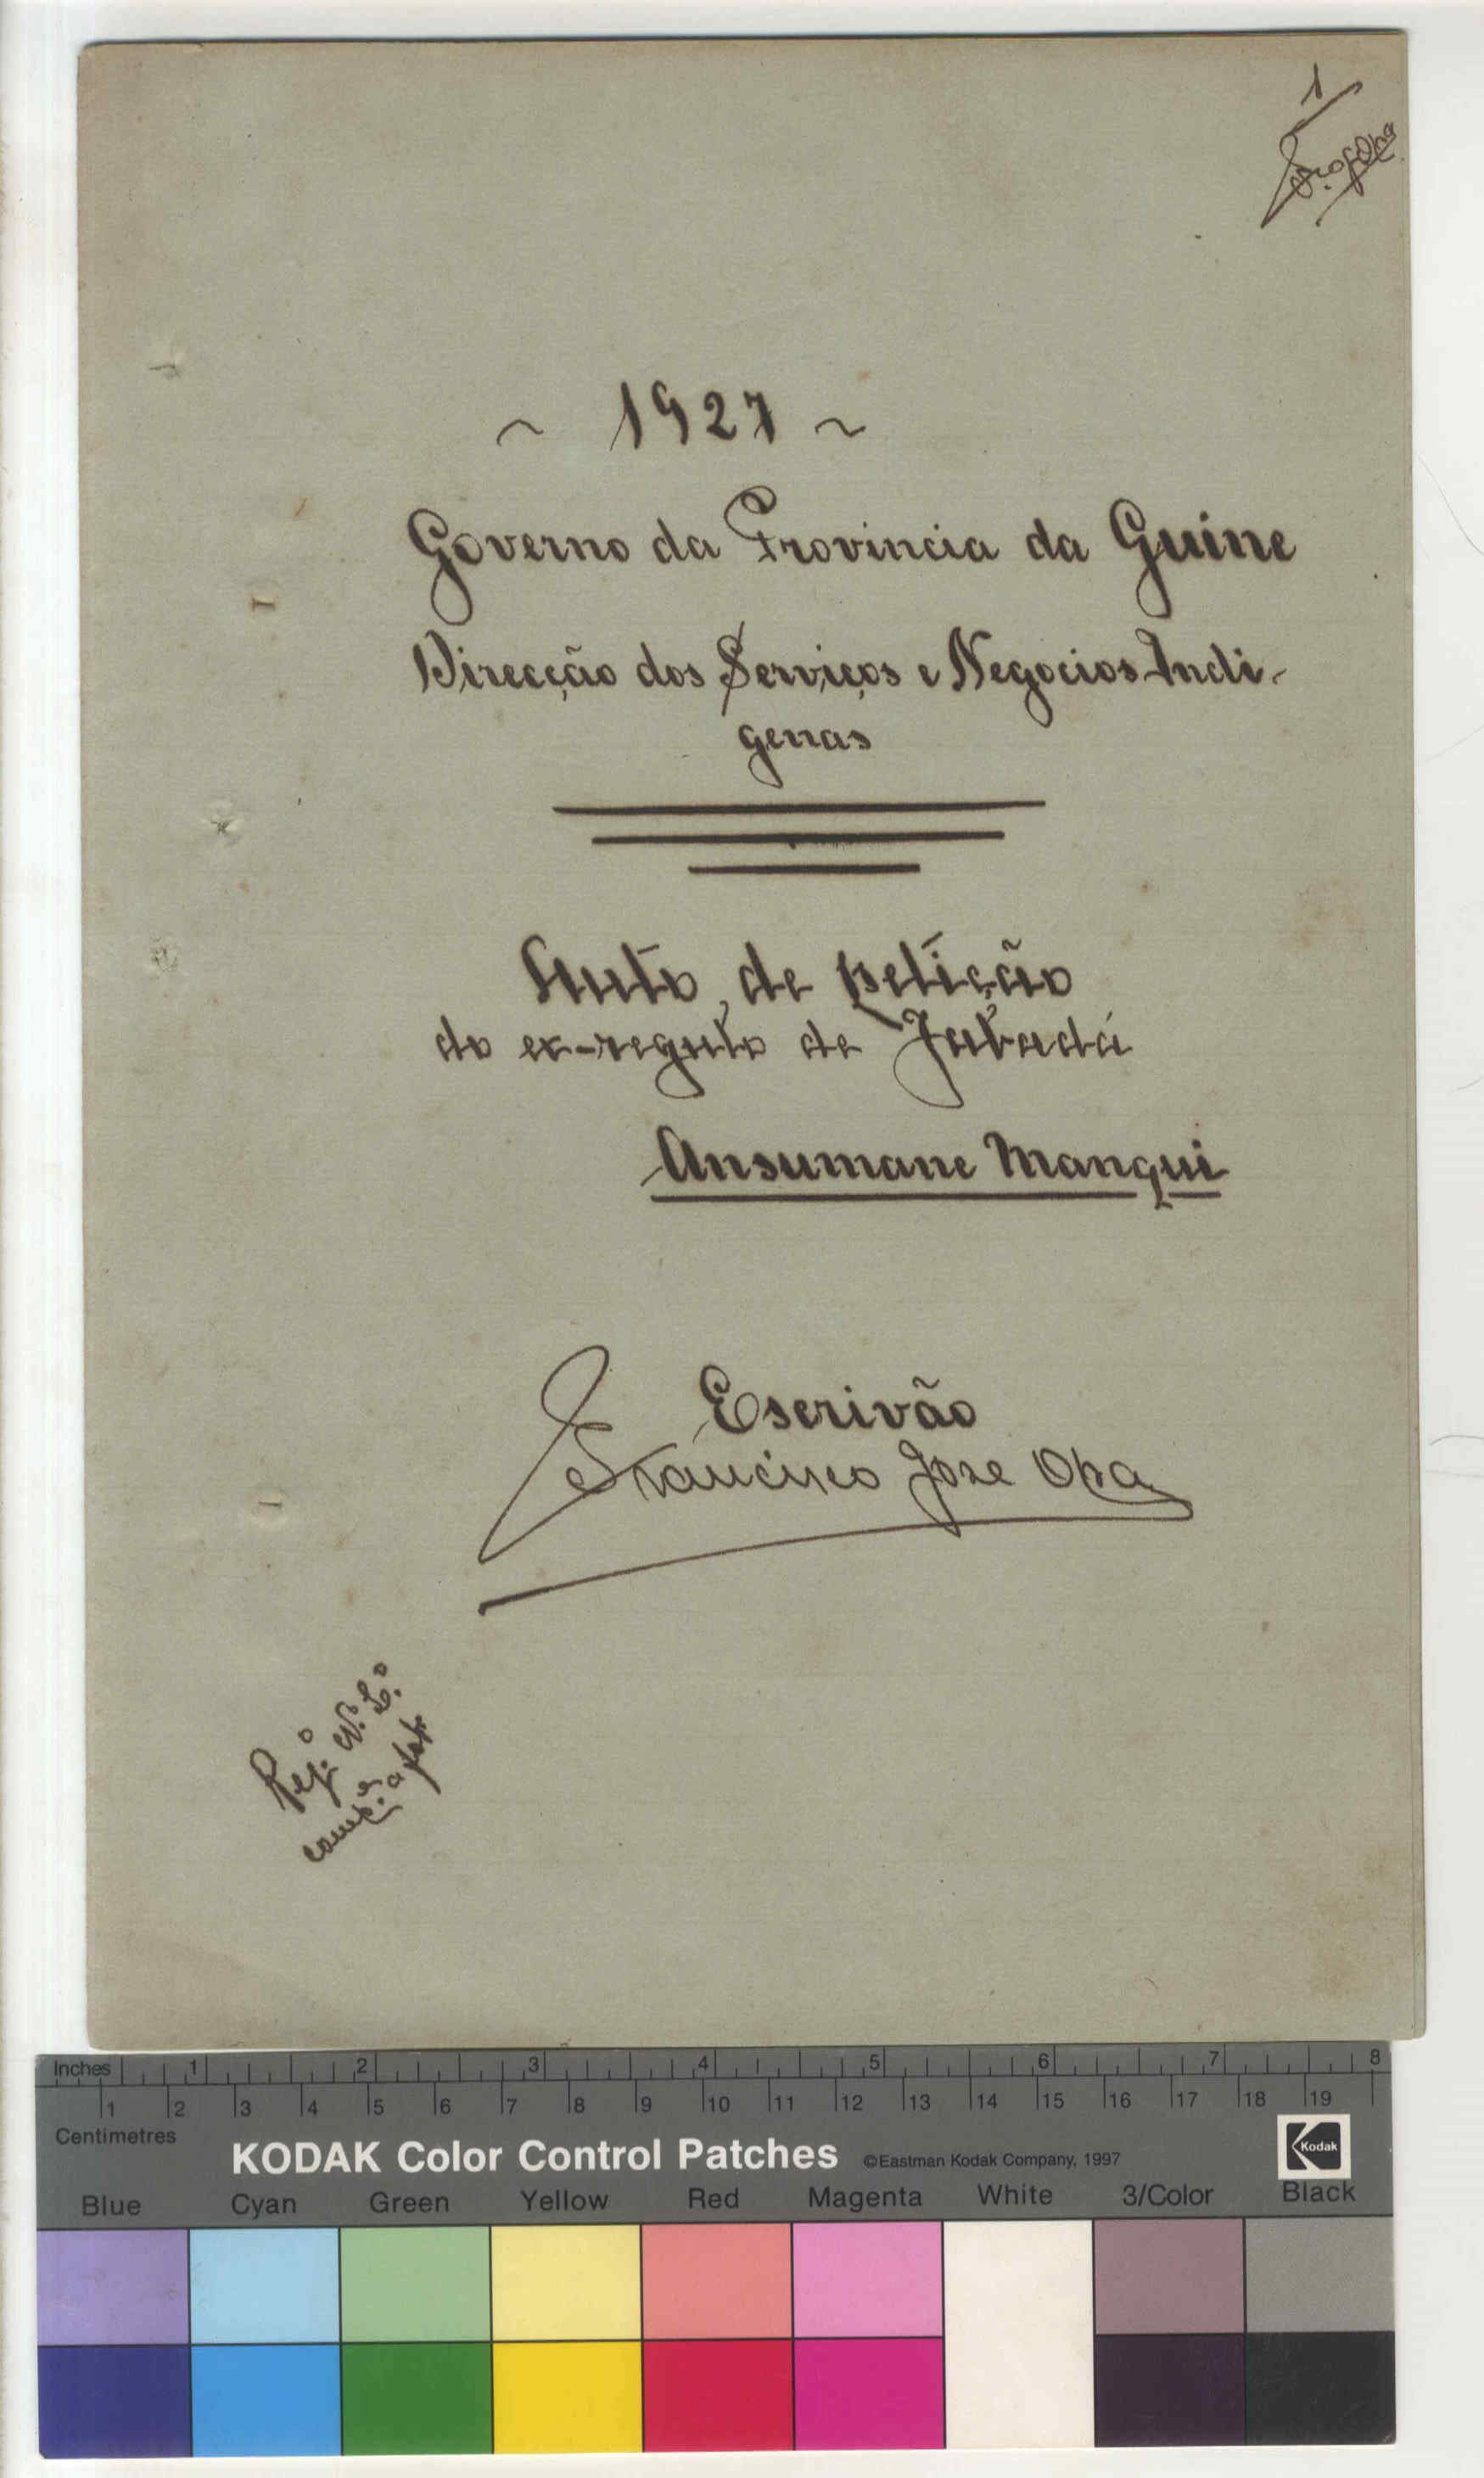 1
~ 1927 ~
Governo da Provincia da Guine
Direcção dos Serviços e Negocios Indi-
genas
Auto de petição
do ex-regulo de Jabadá
Ansumane Manqui
Escrivão
Francisco Jose Oba
Reg.º N. L.º
comp.
Inches 1 2 3 4 5 6 7 8
1 2 3 4 5 6 7 8 9 10 11 12 13 14 15 16 17 18 19
Centimetres
KODAK Color Control Patches ©Eastman Kodak Company, 1997 Kodak
Blue Cyan Green Yellow Red Magenta White 3/Color Black